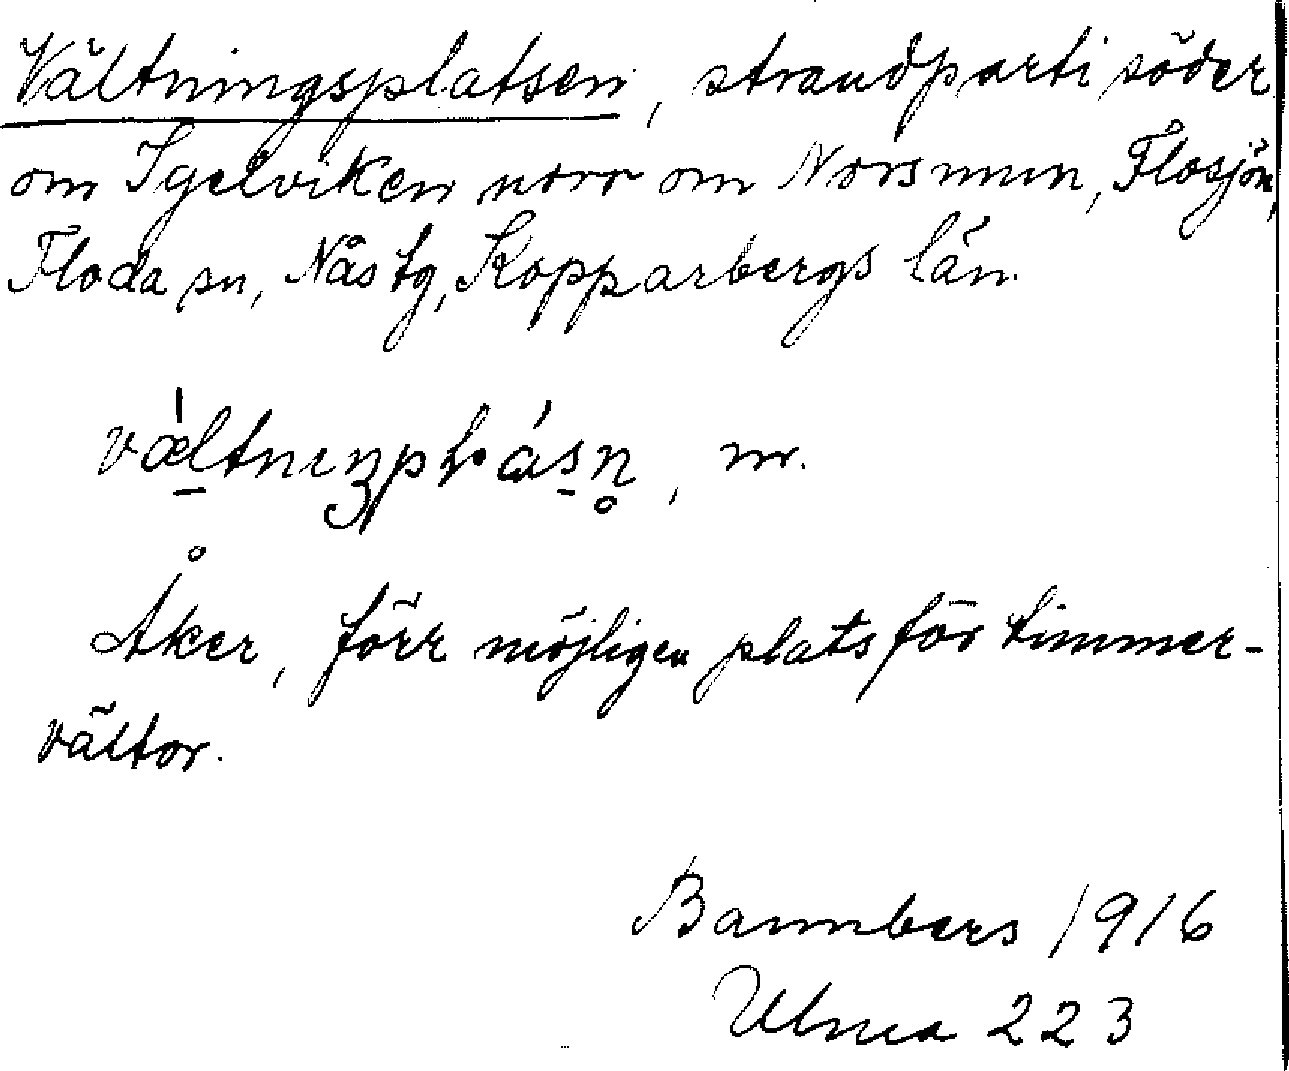 Vältningsplatsen, strandparti söder
om Igelviken norr om Norsmun, Flosjön,
Floda sn, Nås tg, Kopparbergs län.
m.
Åker, förr möjligen plats för timmer-
vältor.
Bannbers 1916
Ulma 223